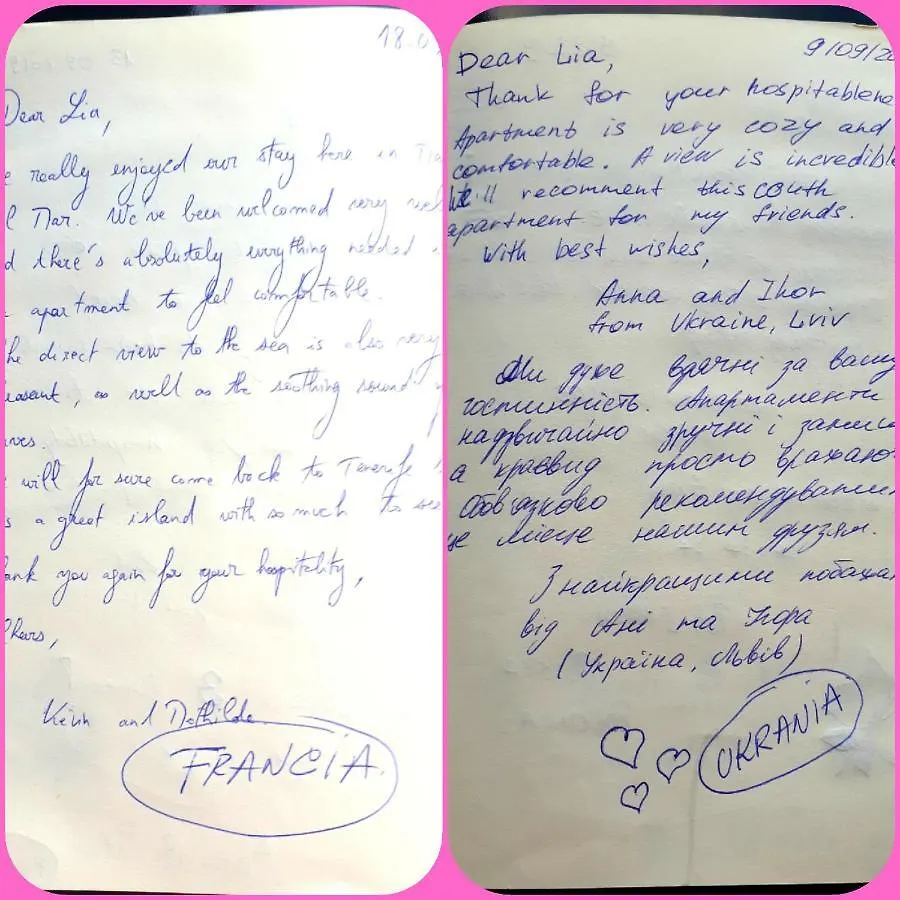 18.0
Dear Lia,
e really enjoyed our stay here in
l Mar. We've been welcomed very well
d there's absolutely everything needed
apartment to feel comfortable.
he direct view to the sea is also very
easant, as well as the soothing sound
ves.
will for sure come back to Tenerife
s a great island with so much to see
ank you again for your hospitality,
Cheers,
Kévin and Mathilde
FRANCIA
9/09/20
Dear Lia,
Thank for your hospitablene
Apartment is very cozy and
comfortable. A view is incredibl
We'll recomment this couth
apartment for my friends.
With best wishes,
Anna and Ihor
from Ukraine, Lviv
Ми дуже вдячні за вашу
гостинність. Апартаменти
надзвичайно зручні і затиш
а краєвид просто вражаю
Обов'язково рекомендувати
це місце нашим друзям.
З найкращими побажа
від Ані та Ігора
(Україна, Львів)
UKRANIA